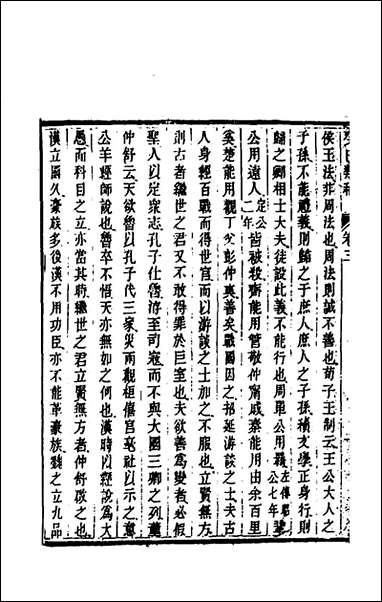 癸巳類稿 卷三
侯王法非周法也周法則誠不善也荀子王制云王公大人之
子孫不能禮義則歸之于庶人庶人之子孫積文學正身行則
歸之卿相士大夫徒設此義不能行也周單公用羈左傳昭公七年鞏
公用遠人定公二年皆被殺齊能用管敬仲甯戚秦能用由余百里
奚楚能用觀丁父彭仲爽善矣戰國因之招延游談之士夫古
人身經百戰而得世官而以游談之士加之不服也立賢無方
則古者繼世之君又不敢得罪於巨室也夫欲善爲變者必假
聖人以定衆志孔子仕魯游至司寇而不與大國三卿之列董
仲舒云天欲魯以孔子代三家災兩觀桓僖宫亳社以示之意
公羊經師說也魯卒不悟天亦無如之何也漢時以經說爲大
愚而科目之立亦當其時繼世之君立賢無方者仲舒啟之也
漢立國久豪族多後漢不用功臣亦不能革豪族魏之立九品